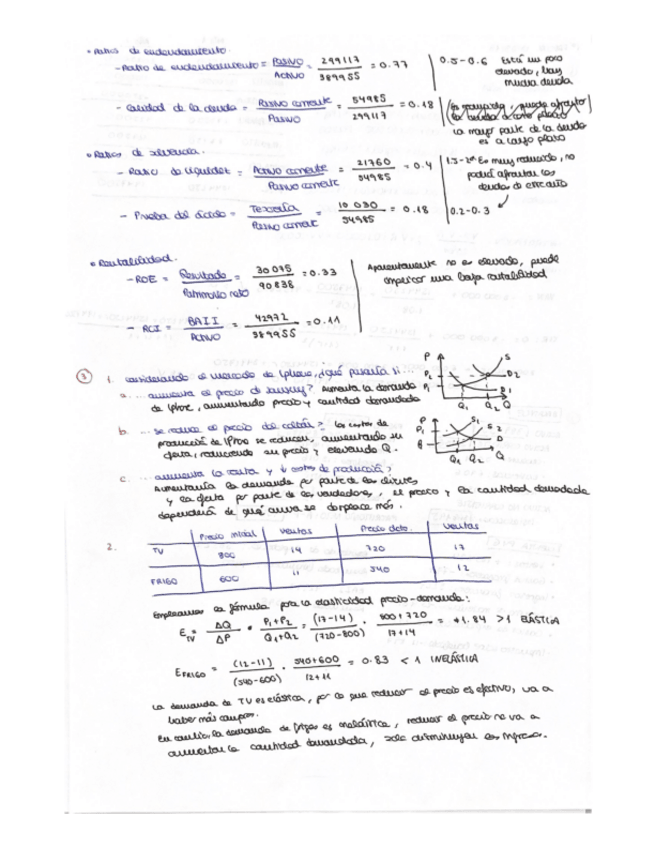 • Ratios de endeudamiento.
- Ratio de endeudamiento = Pasivo / Activo = 299117 / 389955 = 0.77 | 0.5-0.6 Está un poco elevado, hay mucha deuda
- Calidad de la deuda = Pasivo corriente / Pasivo = 54985 / 299117 = 0.18
La mayor parte de la deuda es a largo plazo
• Ratios de solvencia.
- Ratio de liquidez = Activo corriente / Pasivo corriente = 21760 / 54985 = 0.4 | Es muy reducido, no podrá afrontar las deudas de circuito
- Prueba del ácido = Tesorería / Pasivo corrient = 10 030 / 54985 = 0.18 | 0.2-0.3
• Rentabilidad.
- ROE = Resultado / Patrimonio neto = 30095 / 90838 = 0.33 | Aparentemente no es elevado, puede implicar una baja rentabilidad
- RCI = BAII / Activo = 42972 / 389955 = 0.11
3 1. Considerando el mercado de Iphone, ¿qué pasaría si ...
a. ... aumenta el precio di Samsung? Aumenta la demanda
de Iphone, aumentando precio y cantidad demandada
P S P2 P1 D2 D1 Q1 Q2 Q
b. ... se reduce el precio del coltán? Los costes de
producción de IPhone se reducen, aumentando su
oferta, reduciendo su precio y elevando Q.
P P1 S1 S2 D Q1 Q2 Q
c. ... aumenta la renta y ↓ costes de producción?
Aumentaría la demanda por parte de los clientes
y la oferta por parte de los vendedores, el precio y la cantidad demandada
dependerá de qué curva se desplace más.
2.
Precio inicial ventas Precio dcto. ventas
TV 800 14 720 17
FRIGO 600 11 540 12
Empleamos la fórmula para la elasticidad precio-demanda:
E TV = ΔQ / ΔP · P1+P2 / Q1+Q2 = (17-14) / (720-800) · 800+720 / 17+14 = 1.84 > 1 ELÁSTICA
E FRIGO = (12-11) / (540-600) · 540+600 / 12+11 = 0.83 < 1 INELÁSTICA
La demanda de TV es elástica, por lo que reducir el precio es efectivo, va a
haber más compras.
En cambio la demanda de frigos es inelástica, reducir el precio no va a
aumentar la cantidad demandada, solo disminuyen los ingresos.